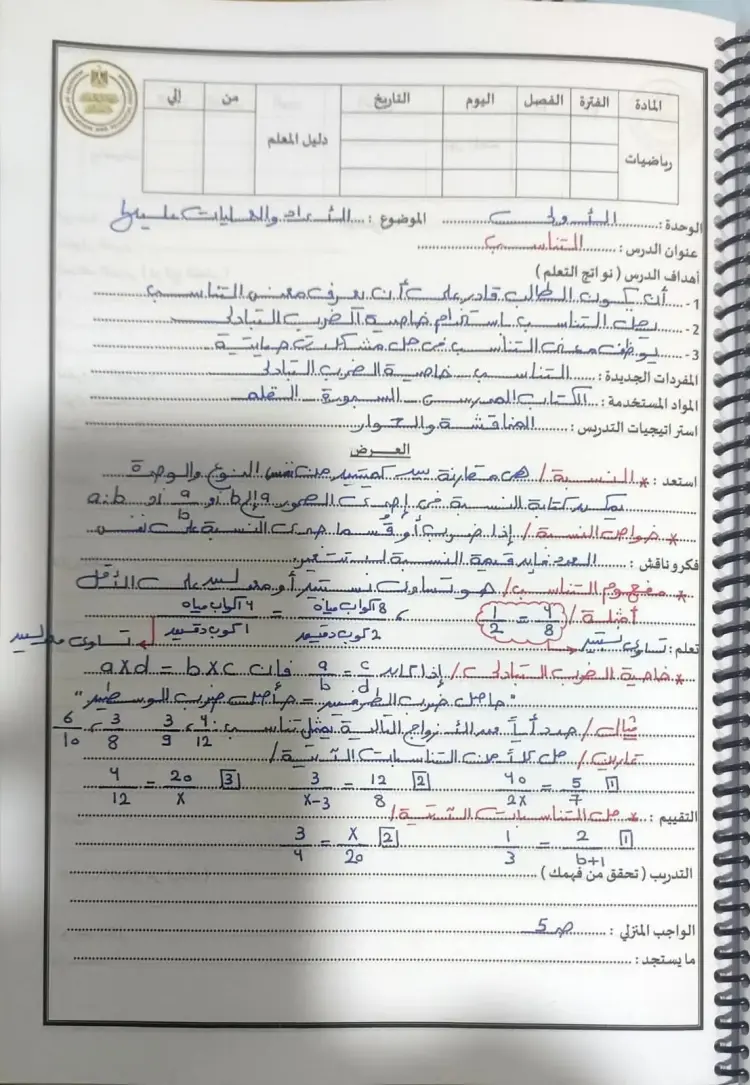 المادة | الفترة | الفصل | اليوم | التاريخ | دليل المعلم | من | إلي
رياضيات
الوحدة : الأولى الموضوع : الأعداد والعمليات عليها
عنوان الدرس : التناسب
أهداف الدرس ( نواتج التعلم )
1- أن يكون الطالب قادر على أن يعرف معنى التناسب
2- يحل التناسب باستخدام خاصية الضرب التبادلى
3- يوظف معنى التناسب فى حل مشكلات حياتية
المفردات الجديدة : التناسب خاصية الضرب التبادلى
المواد المستخدمة : الكتاب المدرسى - السبورة - القلم
استراتيجيات التدريس : المناقشة والحوار
العرض
استعد : * النسبة / هى مقارنة بين كميتين من نفس النوع والوحدة
يمكن كتابة النسبة فى إحدى الصور a إلى b أو a/b أو a:b
* خواص النسبة / إذا ضرب أو قُسما حدى النسبة على نفس
فكر وناقش : العدد فإن قيمة النسبة لا تتغير
* مفهوم التناسب / هو تساوى نسبتين أو معدلين على الأقل
أمثلة / 1/2 = 4/8 ، 8 أكواب مياه / 2 كوب دقيق = 4 أكواب مياه / 1 كوب دقيق
تعلم : تساوى نسبتين تساوى معدلين
* خاصية الضرب التبادلى / إذا كان a/b = c/d فإن a×d = b×c
" حاصل ضرب الطرفين = حاصل ضرب الوسطين "
مثال / حدد أياً من الأزواج التالية يمثل تناسب : 4/12 ، 3/9 3/8 ، 6/10
تمارين / حل كلاً من التناسبات الآتية /
1 5/7 = 40/2x 2 12/8 = 3/x-3 3 20/x = 4/12
التقييم : * حل التناسبات الآتية /
1 2/b+1 = 1/3 2 x/20 = 3/4
التدريب ( تحقق من فهمك )
الواجب المنزلي : صـ 5
ما يستجد :